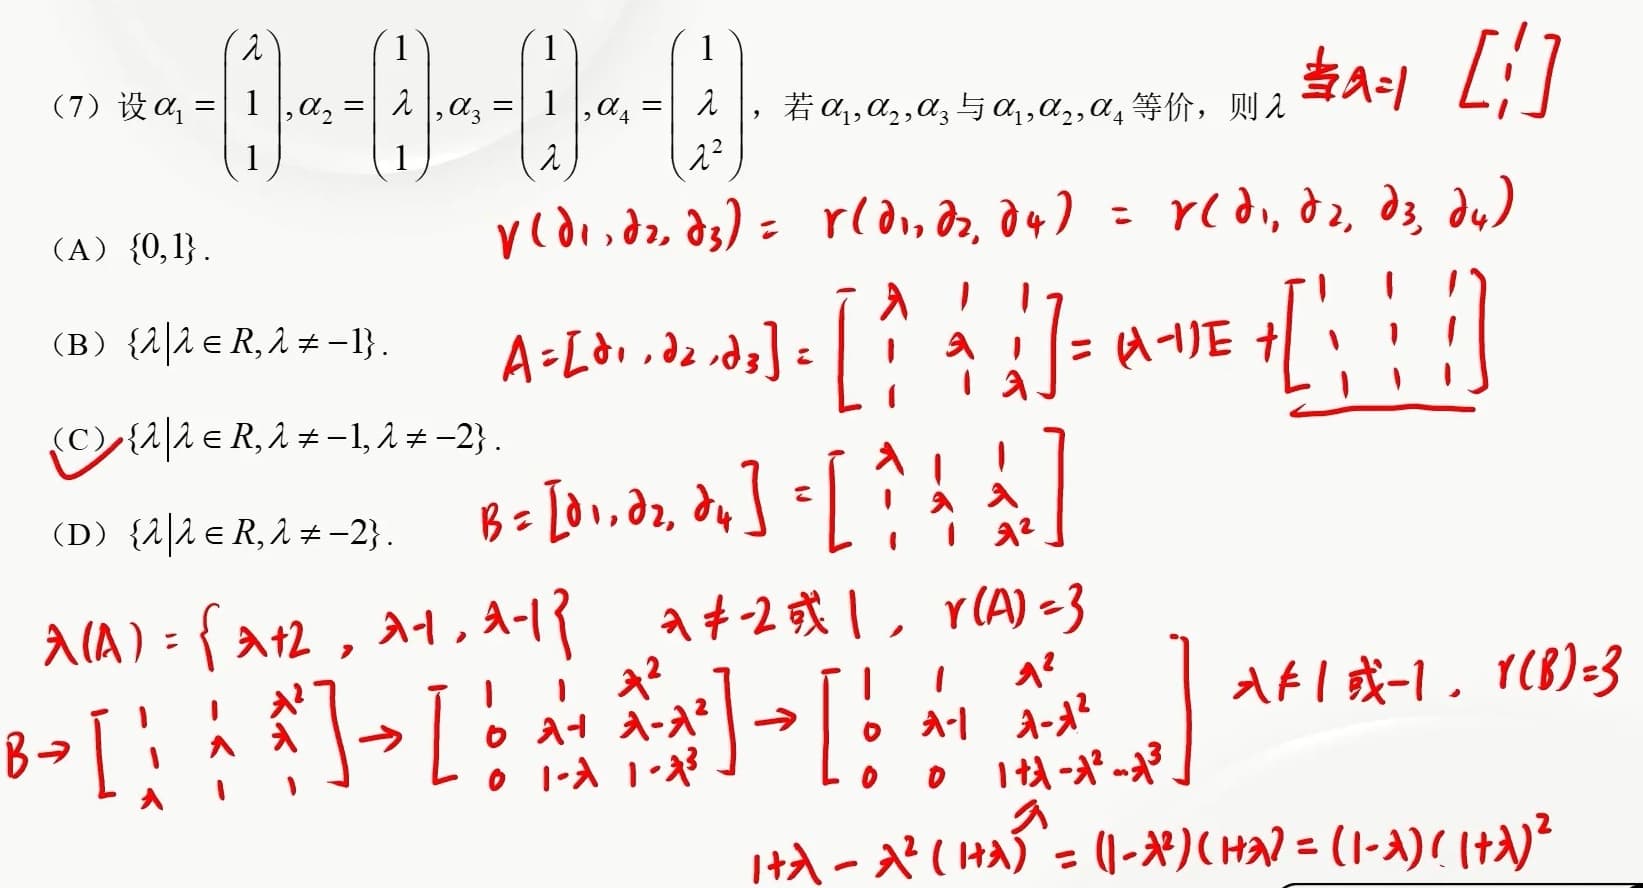 （7）设 α₁ = (λ 1 1), α₂ = (1 λ 1), α₃ = (1 1 λ), α₄ = (1 λ λ²)，若 α₁,α₂,α₃ 与 α₁,α₂,α₄ 等价，则 λ 当λ=1 [1 1 1]
r(α1,α2,α3) = r(α1,α2,α4) = r(α1,α2,α3,α4)
（A）{0,1}.
（B）{λ|λ∈R,λ≠−1}.
A=[α1,α2,α3]=[λ 1 1; 1 λ 1; 1 1 λ]=(λ-1)E+[1 1 1; 1 1 1; 1 1 1]
（C）{λ|λ∈R,λ≠−1,λ≠−2}.
B=[α1,α2,α4]=[λ 1 1; 1 λ λ; 1 1 λ²]
（D）{λ|λ∈R,λ≠−2}.
λ(A)={λ+2, λ-1, λ-1} λ≠-2或1, r(A)=3
B→[1 1 λ²; 1 λ λ; λ 1 1]→[1 1 λ²; 0 λ-1 λ-λ²; 0 1-λ 1-λ³]→[1 1 λ²; 0 λ-1 λ-λ²; 0 0 1+λ-λ²-λ³] λ≠1或-1. r(B)=3
1+λ-λ²(1+λ)=(1-λ²)(1+λ)=(1-λ)(1+λ)²